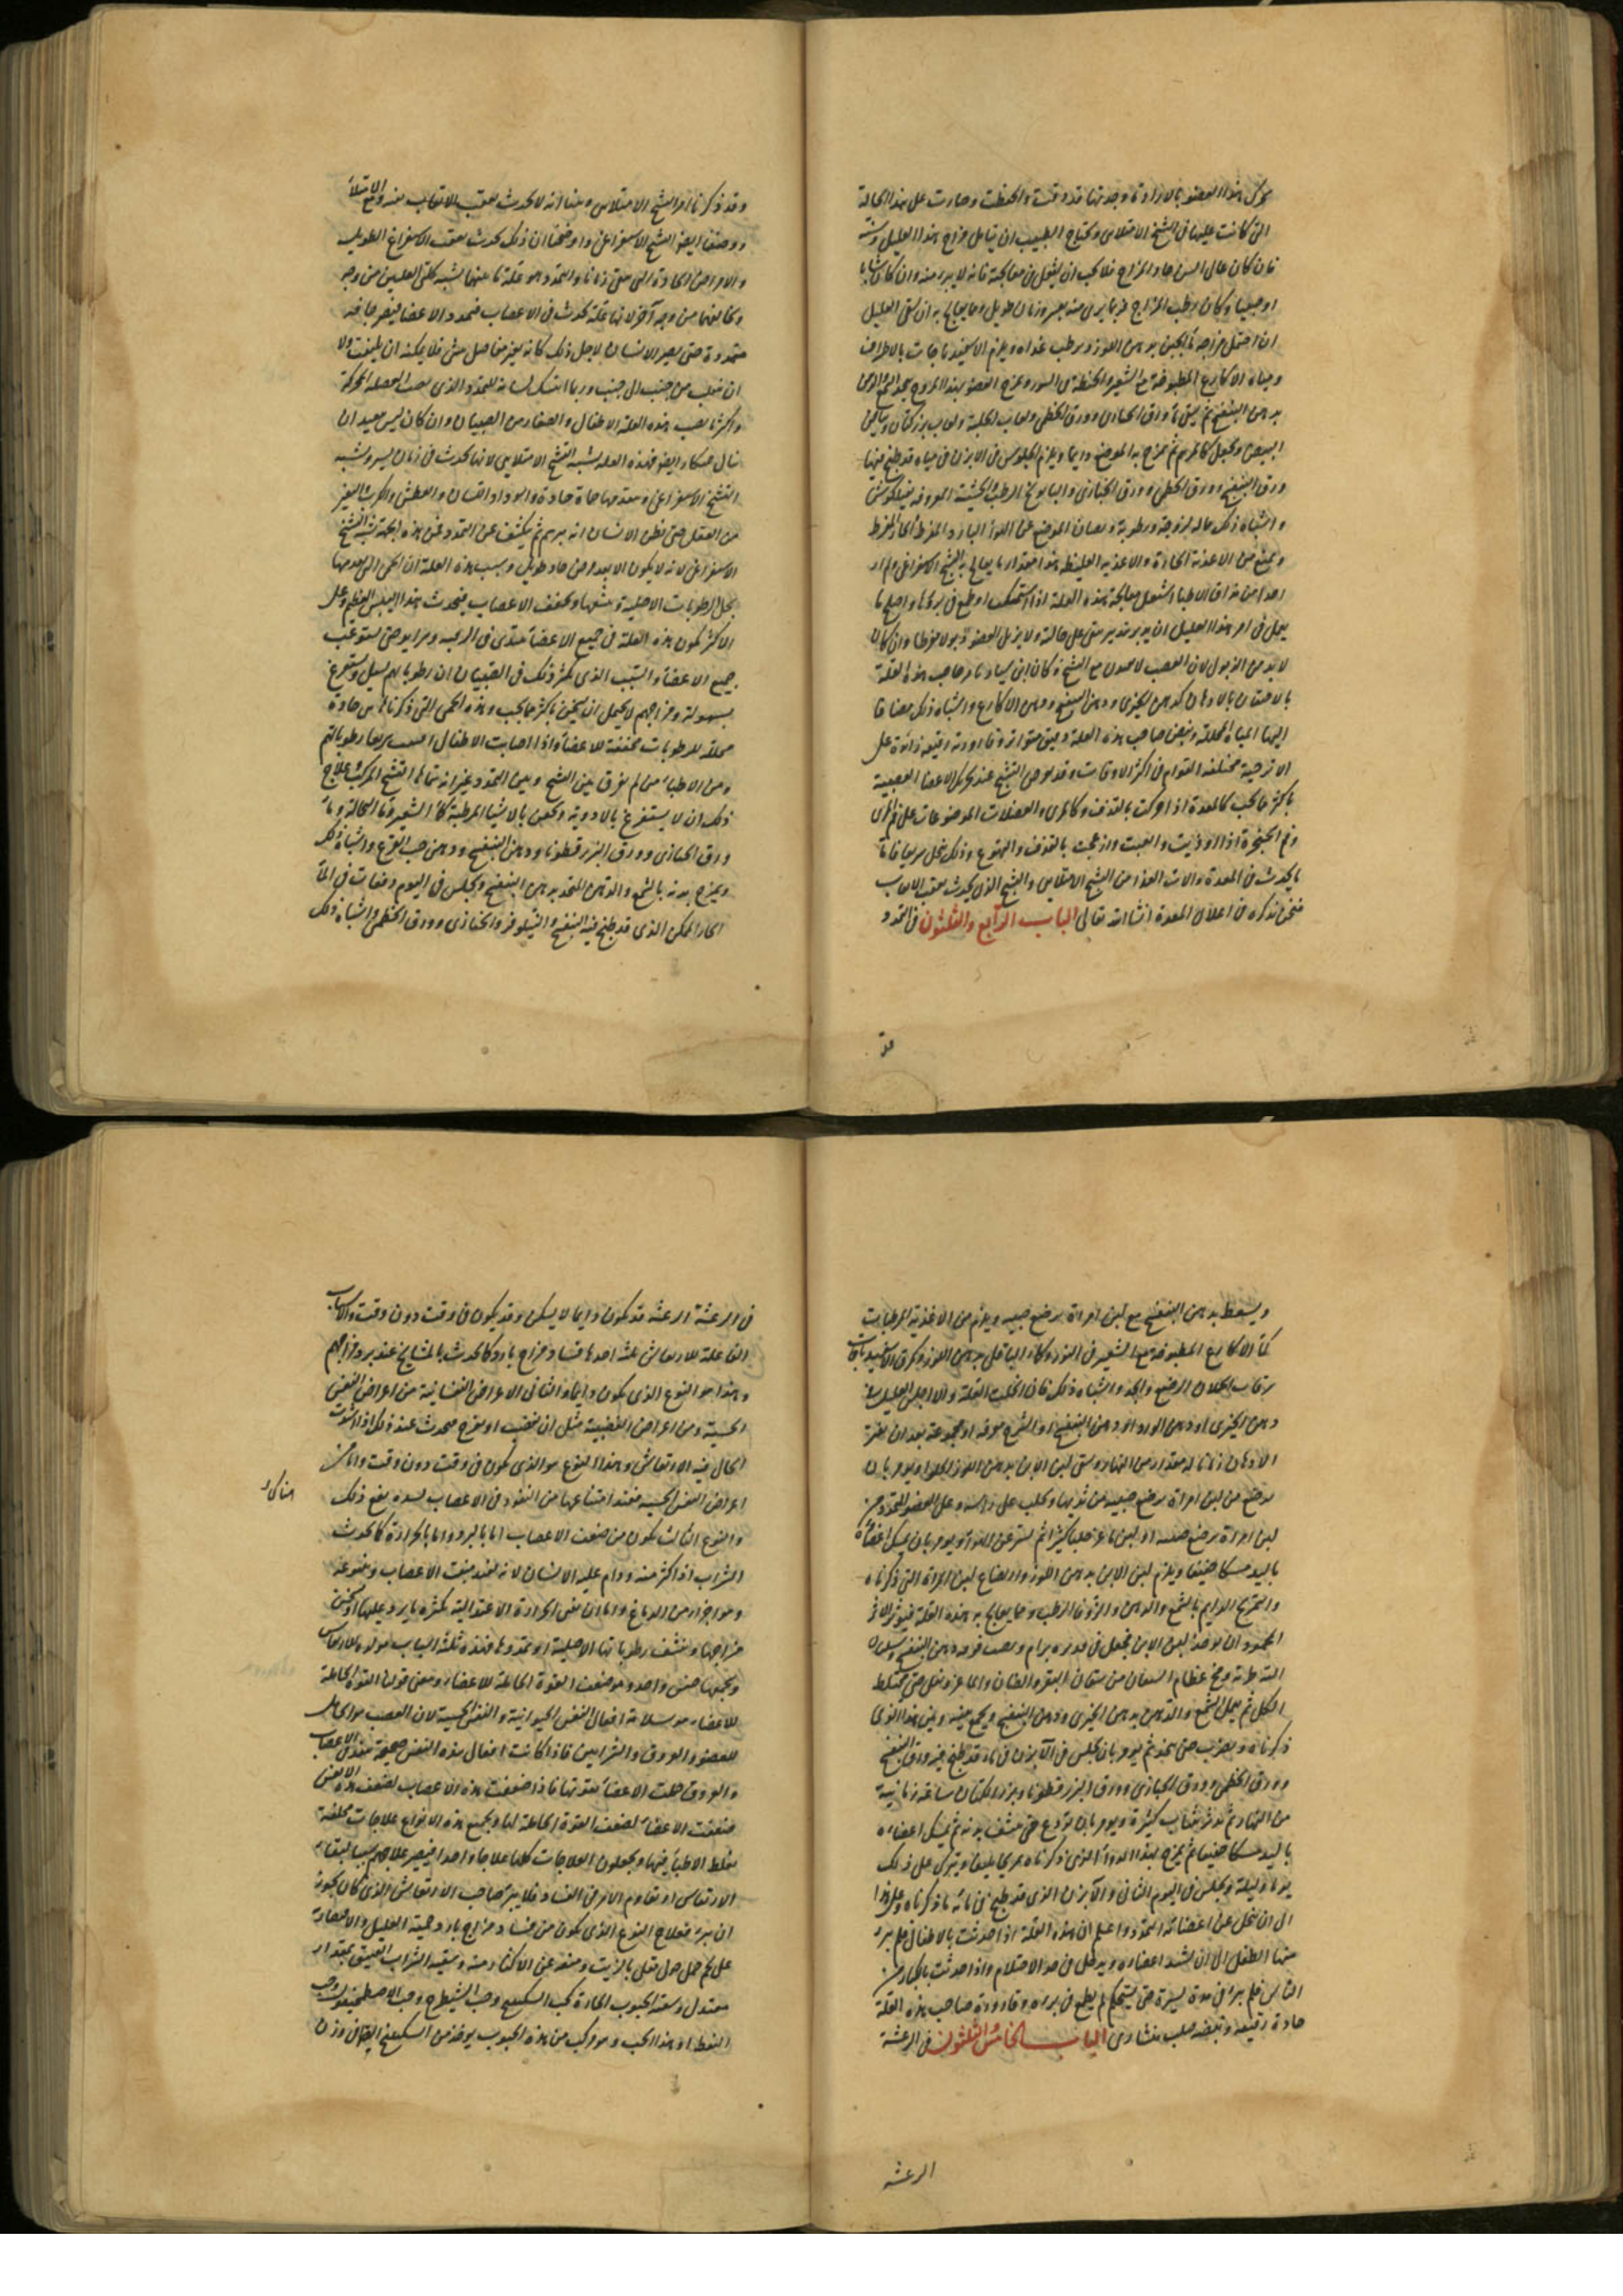 يحرك هذا العضو بالارادة وجدتها قد وقت والحفظت وصارت على هذا الحالة
التي كانت عليها في التشنج الامتلائي ويحتاج الطبيب ان يتأمل مزاج هذا العليل وسنه
فان كان عالي السن حاد المزاج فلا يجب ان يشتغل في معالجته فانه لا يبرء منه وان كان شابا
او صبيا وكان رطب المزاج فربما برى منه بعد زمان طويل ومما يعالج به ان يسقى العليل
ان احتمل مزاجه ماء الجبن بدهن اللوز ويرطب غذاه ويلزم الاسفيدباجات بالاطراف
ومياه الاكارع المطبوخة مع الشعير والحنطة في التنور ويمرخ العضو بهذا المروخ
بدهن البنفسج ثم يسقى ماء ورق الخبازى وورق الخطمى ولعاب الحلبة ولعاب بزر كتان وبياض
البيض ويجعل كالمرهم ثم يمرخ به الموضع دايما ويلزم الجلوس في الابزن في مياه قد طبخ فيها
ورق البنفسج وورق الخطمى وورق الخبازى والبابونج الرطب والحشيشة المعروفة بنيلوفر
واشباه ذلك مما له لزوجة ورطوبة ويصان الموضع عن الهواء البارد المفرط والحار المفرط
ويمنع من الاغذية الحارة والاغذية الغليظة هذا مقدار ما يعالج به التشنج الاستفراغى ولم ار
احدا من حذاق الاطباء اشتغل بمعالجة هذه العلة اذا استحكمت او طمع في برؤها واصلح ما
يعمل في امر هذا العليل ان يدبر تدبير يبقى على حالته ولا يزيل العضو ذبولا مفرطا وان كان
لا بد من الذبول لان العصب لا يعدل مع التشنج وكان ابن سيار يأمر صاحب هذه العلة
بالاحتقان بالادهان كدهن الخيرى ودهن البنفسج ودهن الاكارع واشباه ذلك مضافا
اليها المياه المحللة ونبض صاحب هذه العلة دقيق متواتر وقارورته رقيقة زائدة على
الاترجية مختلفة القوام في اكثر الاوقات وقد يعرض التشنج عند تحرك الاعضا العصبية
باكثر مما يجب كالمعدة اذا تحركت بالقذف وكالمرى والعضلات الموضوعات على فم المرى
وفم الحنجرة اذا اوذيت واتعبت وازعجت بالقذف والتهوع وذلك ينحل سريعا فاما
ما يحدث في المعدة والات الغذا من التشنج الامتلائي والتشنج الذي يحدث بعقب الاتعاب
فنحن نذكره في اعلال المعدة انشا الله تعالى الباب الرابع والثلثون في التمدد
وقد ذكرنا امر التشنج الامتلائي وبينا انه لا يحدث بعقب الاتعاب منه وقع الامتلأ
ووصفنا ايضا التشنج الاستفراغى واوضحنا ان ذلك يحدث بعقب الاستفراغ الطويل
والامراض الحادة التي تبقى زمانا والتمدد هو علة ما بينهما تشبه كلتى العلتين من وجه
وتخالفهما من وجه آخر لانها علة تحدث في الاعصاب فتمدد الاعضا فيصير جافة
متمددة حتى يصير الانسان لاجل ذلك كانه بغير مفاصل حتى فلا يمكنه ان يلتفت ولا
ان ينقلب من جنب الى جنب وربما امسك لسانه للتمدد الذى يصيب العضلة المحركة
واكثر ما يصيب هذه العلة الاطفال والصغار من الصبيان وان كان ليس ببعيد ان
ينال الكبار ايضا فهذه العلة تشبه التشنج الامتلائي لانها تحدث في زمان يسير وتشبه
التشنج الاستفراغى ويتقدمها حماة حادة واسوداد اللسان والعطش والكرب والتغير
من العقل حتى يظن الانسان انه برسم ثم يكشف عن التمدد فمن هذه الجهة يشبه التشنج
الاستفراغى لانه لا يكون الا بعد مرض حاد طويل وسبب هذه العلة ان الحمى التى تقدمها
تحلل الرطوبات الاصلية وتنشفها وتجفف الاعصاب فيحدث هذا اليبس العظيم وعلى
الاكثر تكون هذه العلة في جميع الاعضأ تبتدى في الرقبة ومرا يوحتى يستوعب
جميع الاعضأ والسبب الذى يكثر ذلك في الصبيان ان رطوباتهم تسيل وتستفرغ
بسهولة ومزاجهم لا يحتمل ان يسخن باكثر مما يجب وهذه الحمى التى ذكرناها هى حادة
محللة للرطوبات مجففة للاعضأ واذا اصابت الاطفال افنت سريعا رطوباتهم
ومن الاطباء من لم يفرق بين التشنج وبين التمدد غير انه سماها التشنج المركب وعلاج
ذلك ان لا يستفرغ بالادوية ويحقن بالاشيا المرطبة كماء الشعير وماء النخالة وماء
ورق الخبازى وورق البزر قطونا ودهن البنفسج ودهن حب القرع واشباه ذلك
ويمرخ بدنه بالشمع والدهن المتخذ بدهن البنفسج ويجلس في اليوم دفعات في المأ
الحار الممكن الذى قد طبخ فيه البنفسج والنيلوفر والخبازى وورق الخطمى واشباه ذلك
ويسعط بدهن البنفسج مع لبن امراة ترضع صبية ويلزم من الاغذية المرطبات
كماء الاكارع المطبوخة مع الشعير في التنور وكماء الباقلى بدهن اللوز وكمرق الاسفيدباجات
برقاب الحملان الرضع والجدا واشباه ذلك فان انحلت العلة والا اجلس العليل في
دهن الخيرى او دهن الورد او دهن البنفسج او الشيرج مفردة او مجموعة بعد ان يفتر
الادهان زمانا له مقدار من النهار ويسقى لبن الاتن بدهن اللوز الحلو او يؤمر بان
يرضع من لبن امراة ترضع صبية من ثديها ويحلب على راسه وعلى العضو المتمدد من
لبن امراة ترضع صبية او لبن ماعز حلبا كثيرا ثم يستر عن الهوا ويؤمر بان يمسك اعضأه
باليد مسكا خفيفا ويلزم لبن الاتن بدهن اللوز وارتضاع لبن المراة التى ذكرناه
والتمريخ الدايم بالشمع والدهن والزوفا الرطب ومما يعالج به هذه العلة فيؤثر الاثر
المحمود ان يؤخذ لبن الاتن فيجعل في قدره برام ويصب فوقه دهن البنفسج
ومخ عظام الساقان من سيقان البقر والضان والماعز ويغلى حتى يختلط
الكل ثم يعمل الشمع والدهن بدهن الخيرى ودهن البنفسج ويجمع بينه وبين هذا الذى
ذكرناه ويضرب حتى يتحد ثم يؤمر بان يجلس في الآبزن في ماء قد طبخ فيه ورق البنفسج
وورق الخطمى وورق الخبازى وورق البزر قطونا وبزر الكتان ساعة زمانية
من النهار ثم يدثر بثياب كثيرة ويؤمر بان يودع حتى ينشف بدنه ثم يمسك اعضاه
باليد مسكا خفيفا ثم يمرخ بهذا الدوأ الذى ذكرناه تمريخا بليغا ويترك على ذلك
يوما وليلة ويجلس في اليوم الثاني والآبزن الذى قد طبخ في مائه ما ذكرناه وعلى هذا
الى ان تنحل عن اعضائه التمدد واعلم ان هذه العلة اذا حدثت بالاطفال فلم يبرء
منها الطفل الى ان تشتد اعضاه ويدخل في حد الاحتلام واذا حدثت بالكبار من
الناس فلم يبرء في مدة يسيرة حتى يستحكم لم يطمع في برءه وقارورة صاحب هذه العلة
حادة رقيقة ونبضه صلب منشارى الباب الخامس والثلثون في الرعشة
الرعشه
في الرعشة الرعشه قد تكون دايما لا يسكن وقد يكون في وقت دون وقت والاسباب
الفاعلة للارتعاش ثلثة احدها فساد مزاج بارد كما يحدث بالمشايخ عند برد مزاجهم
وهذا هو النوع الذى يكون دايما والثانى الاعراض النفسانية من اعراض النفس
الحسية ومن اعراض الغضبية مثل ان يغضب او يفرح فيحدث عند ذلك اذا اشتدت
الحال فيه الارتعاش وهذا النوع هو الذى يكون في وقت دون وقت واما من
اعراض النفس الحسية فعند امتناعها من النفوذ في الاعصاب لسدة يقع ذلك
والنوع الثالث يكون من ضعف الاعصاب اما بالبرد واما بالحرارة كما يحدث
الشراب اذا اكثر منه ودام عليه الانسان لانه عند يضعف الاعصاب وينوعه
وهو اجزاء من الدماغ واما ان يفنى الحرارة الاعتدالية بكثرة ما يرد عليها او يسخن
مزاجها وينشف رطوباتها الاصلية او تمددها فهذه ثلثة اسباب مولدة للارتعاش
ويجمعها جنس واحد وهو ضعف القوة الحاملة للاعضاء ومعنى قولنا القوة الحاملة
للاعضاء هو سلامة افعال النفس الحيوانية والنفس الحسية لان العصب هو الحامل
للعضو والعروق والشرايين فاذا كانت افعال هذه النفس صحيحة معتدل الاعصاب
والعروق حملت الاعضأ بقوتها فاذا ضعفت هذه الاعصاب لضعف هذه النفس
ضعفت الاعضأ لضعف القوة الحاملة لها ولجميع هذه الانواع علاجات مختلفة
يغلط الاطبأ فيها ويجعلون العلاجات كلها علاجا واحدا فيصير علاجهم سببا لبقاء
الارتعاش او تفاوم الامر في الفساد فلا يبرء صاحب الارتعاش الذى كان يجوز
ان يبرء فعلاج النوع الذى يكون من فساد مزاج بارد حمية العليل والاقتصار
على لحم حمل حولى مقلى بالزيت ومنعه عن الاكثار منه وسقيه الشراب العتيق بمقدار
معتدل وسقيه الحبوب الحارة كحب السكبينج وحب الشيطرج وحب الاصطمخيقون وحب
النفط او هذا الحب وهو مركب من هذه الحبوب يؤخذ من السكبينج الصافى وزن